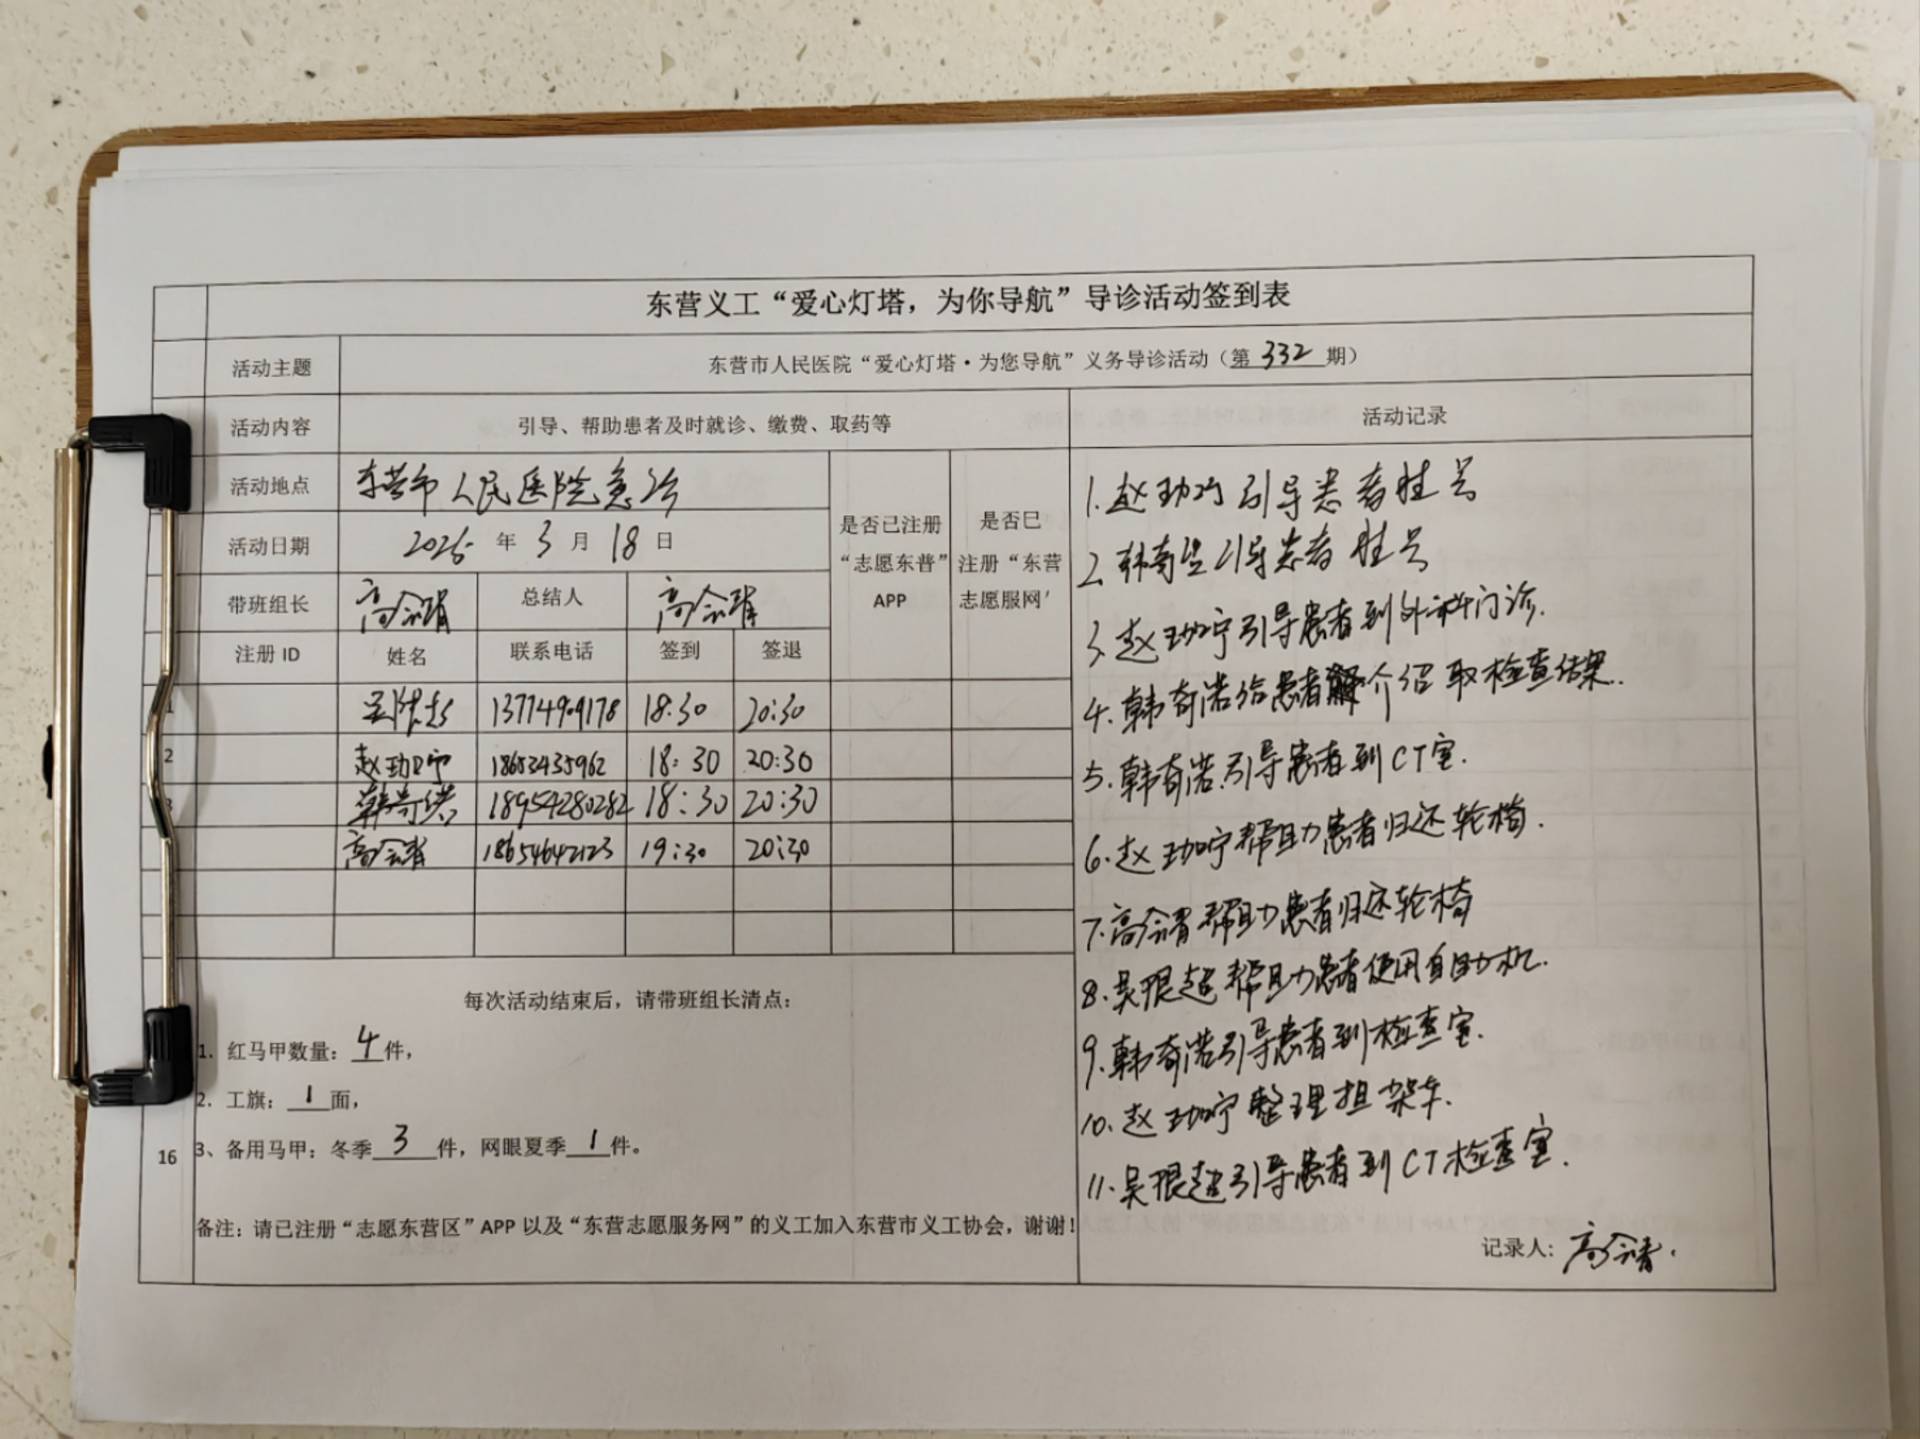 东营义工“爱心灯塔，为你导航”导诊活动签到表
活动主题 东营市人民医院“爱心灯塔·为您导航”义务导诊活动（第 332 期）
活动内容 引导、帮助患者及时就诊、缴费、取药等 活动记录
活动地点 东营市人民医院急诊
活动日期 2025 年 3 月 18 日
是否已注册“志愿东普”APP
是否已注册“东营志愿服网'
带班组长 高会 总结人 高会
注册 ID 姓名 联系电话 签到 签退
18:30 20:30
2 赵 18653435962 18:30 20:30
3 韩奇诺 18954280282 18:30 20:30
高会 18654642123 19:30 20:30
每次活动结束后，请带班组长清点：
1. 红马甲数量：4件，
2. 工旗：1面，
16
3、备用马甲：冬季3件，网眼夏季1件。
备注：请已注册“志愿东营区”APP 以及“东营志愿服务网”的义工加入东营市义工协会，谢谢！
1. 赵 引导患者挂号
2. 韩奇 引导患者挂号
3. 赵 引导患者到外科门诊.
4. 韩奇诺给患者介绍取检查结果.
5. 韩奇诺引导患者到CT室.
6. 赵 帮助患者归还轮椅.
7. 高会 帮助患者归还轮椅
8. 吴 超帮助患者使用自助机.
9. 韩奇诺引导患者到检查室.
10. 赵 整理担架车.
11. 吴 超引导患者到CT检查室.
记录人: 高会